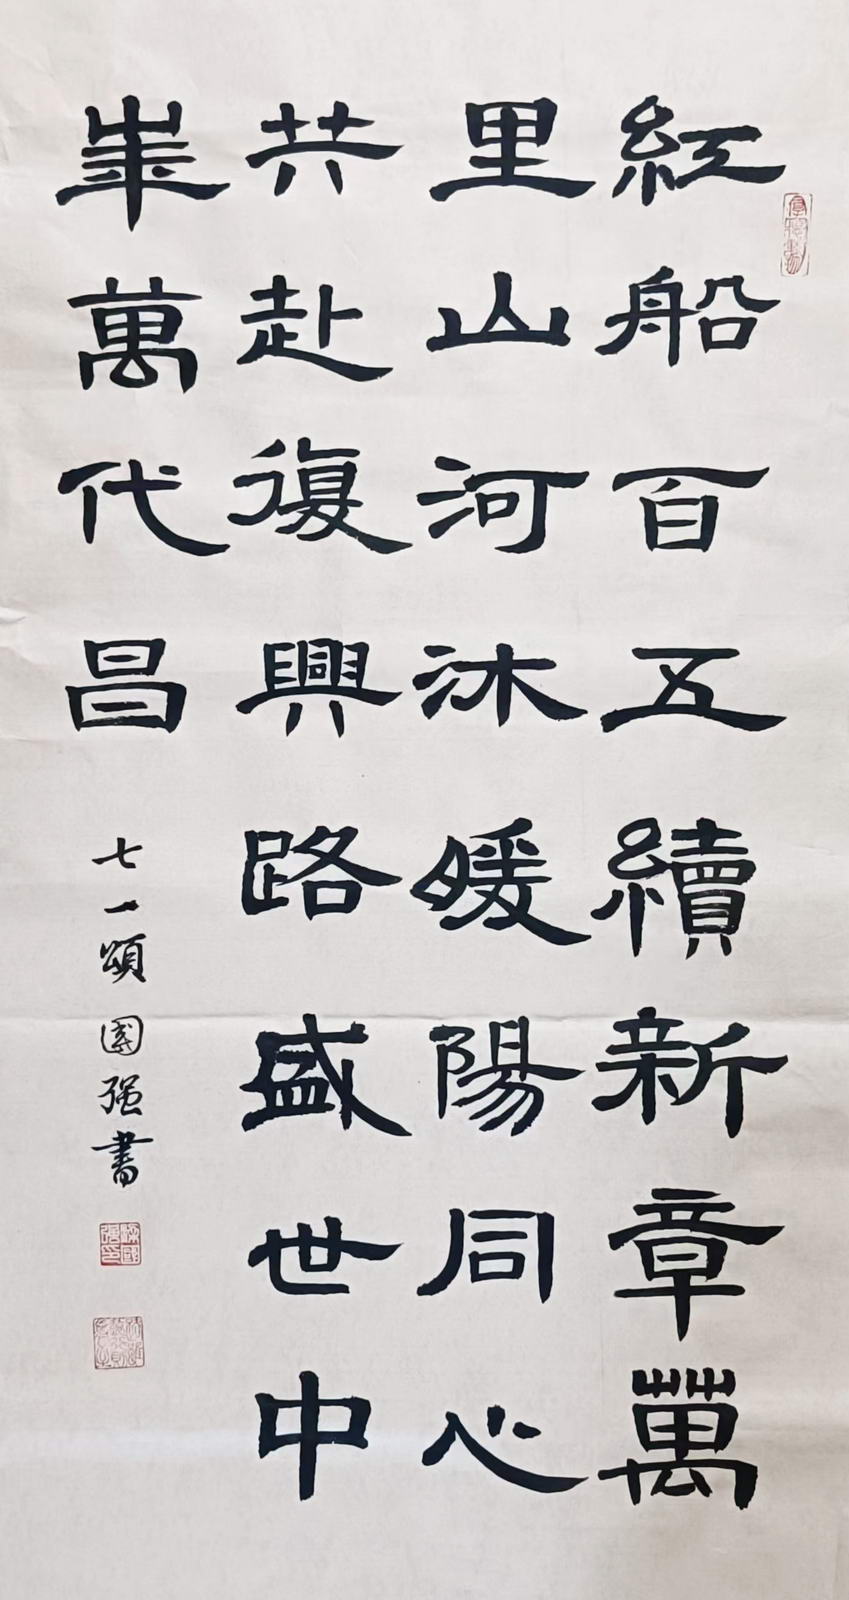 紅船百五續新章萬
里山河沐暖陽同心
共赴復興路盛世中
華萬代昌
七一頌 國强書